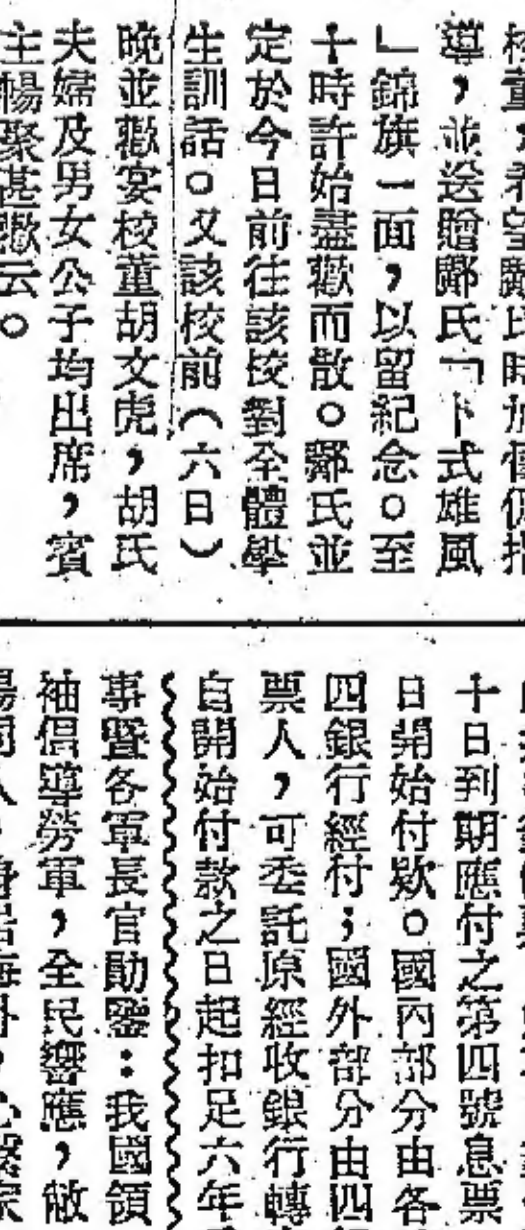 校董,希望鄺氏時加
導,並送贈鄺氏「卜式雄風
」錦旗一面,以留紀念。至
十時許始盡歡而散。鄺氏並
定於今日前往該校對全體學
生訓話。又該校前(六日)
晚並歡宴校董胡文虎,胡氏
夫婦及男女公子均出席,賓
主暢聚甚歡云。
十日到期應付之第四號息票
日開始付欵。國內部分由各
四銀行經付;國外部分由四
票人,可委託原經收銀行轉
自開始付款之日起扣足六年
事暨各軍長官勛鑒:我國領
袖倡導勞軍,全民響應,敝